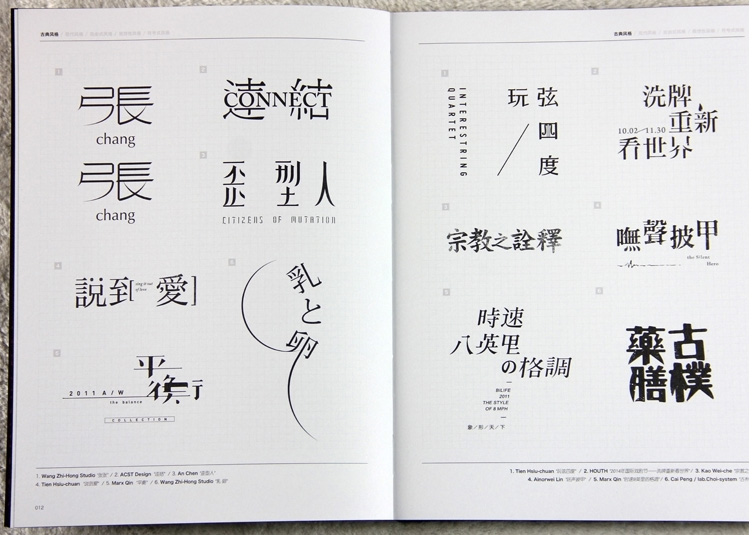 古典风格
1
張
chang
張
chang
2
連結
CONNECT
3
歪型人
CITIZENS OF MUTATION
4
説到[愛]
5
乳と卵
6
平衡
2011 A/W
the balance
COLLECTION
1. Wang Zhi-Hong Studio / 2. ACST Design / 3. An Chen
4. Tien Hsiu-chuan / 5. Marx Qin / 6. Wang Zhi-Hong Studio
012
古典风格
1
INTERESTRING
QUARTET
玩弦
四度
2
洗牌,
重新
10.02／11.30
看世界
3
宗教之詮釋
4
嘸聲披甲
the Silent
Hero
5
時速
八英里
の格調
8ILIFE
2011
THE STYLE
OF 8 MPH
象／形／天／下
6
古樸
藥膳
1. Tien Hsiu-chuan / 2. HOUTH / 3. Kao Wei-che
4. Ainorwei Lin / 5. Marx Qin / 6. Cai Peng / lab.Choi-system